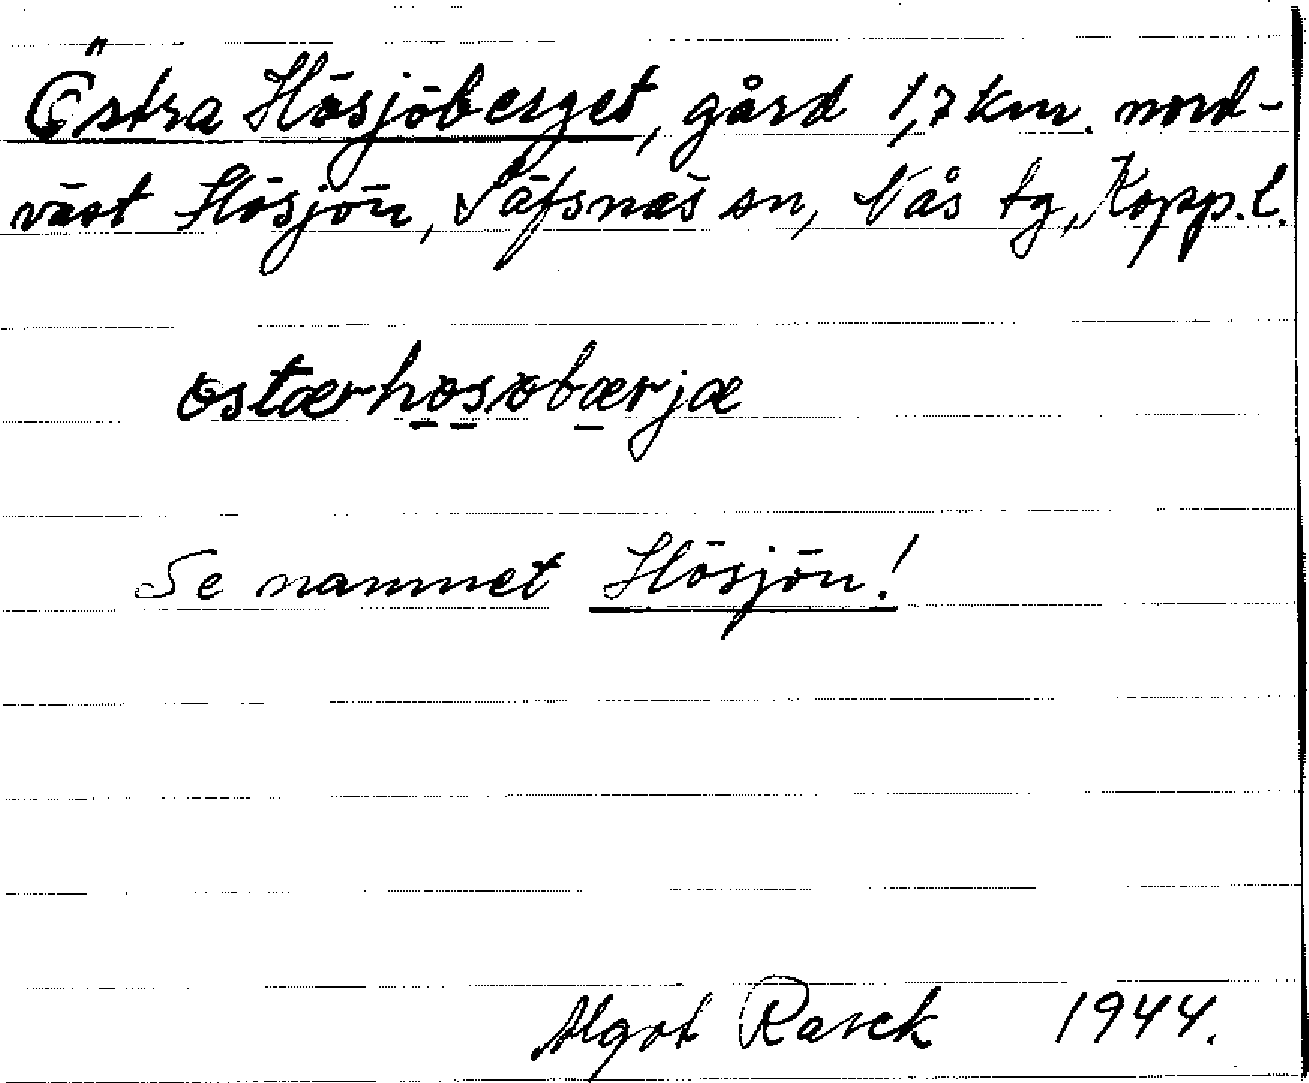 Östra Hösjöberget, gård 1,7 km. nord-
väst Hösjön, Säfsnäs sn, Nås tg, Kopp. l.
östærhösöbærjæ
Se namnet Hösjön!
Algot Rasck 1944.